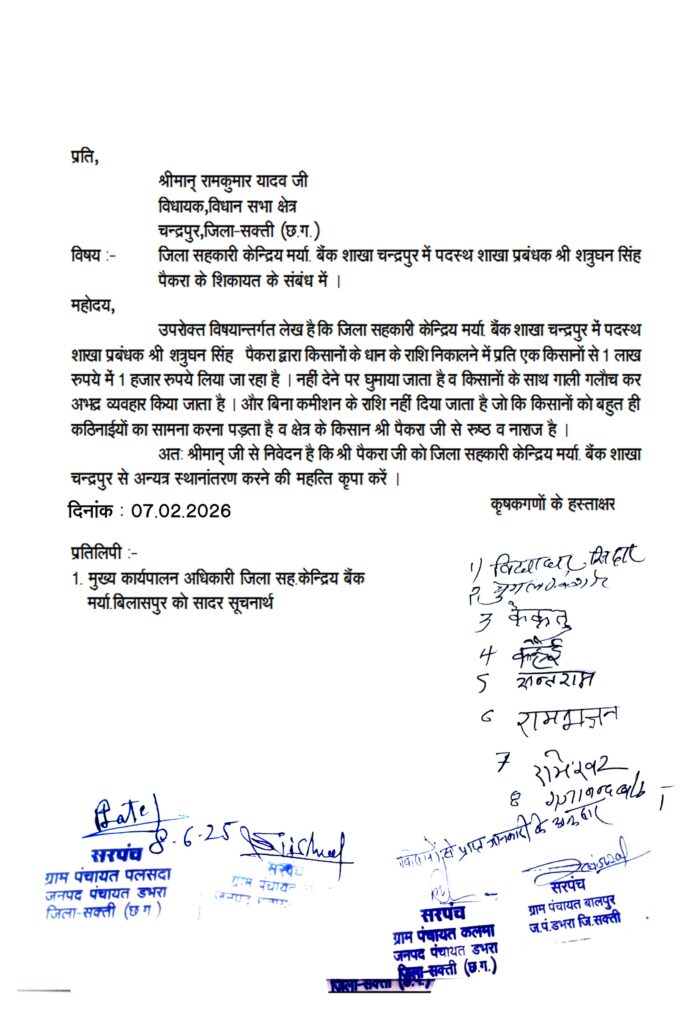 प्रति,
श्रीमान् रामकुमार यादव जी
विधायक,विधान सभा क्षेत्र
चन्द्रपुर,जिला-सक्ती (छ.ग.)
विषय :- जिला सहकारी केन्द्रिय मर्या. बैंक शाखा चन्द्रपुर में पदस्थ शाखा प्रबंधक श्री शत्रुघन सिंह
पैकरा के शिकायत के संबंध में ।
महोदय,
उपरोक्त विषयान्तर्गत लेख है कि जिला सहकारी केन्द्रिय मर्या. बैंक शाखा चन्द्रपुर में पदस्थ
शाखा प्रबंधक श्री शत्रुघन सिंह पैकरा द्वारा किसानों के धान के राशि निकालने में प्रति एक किसानों से 1 लाख
रुपये में 1 हजार रुपये लिया जा रहा है । नहीं देने पर घुमाया जाता है व किसानों के साथ गाली गलौच कर
अभद्र व्यवहार किया जाता है । और बिना कमीशन के राशि नहीं दिया जाता है जो कि किसानों को बहुत ही
कठिनाईयों का सामना करना पड़ता है व क्षेत्र के किसान श्री पैकरा जी से रुष्ठ व नाराज है ।
अतः श्रीमान् जी से निवेदन है कि श्री पैकरा जी को जिला सहकारी केन्द्रिय मर्या. बैंक शाखा
चन्द्रपुर से अन्यत्र स्थानांतरण करने की महत्ति कृपा करें ।
दिनांक : 07.02.2026
कृषकगणों के हस्ताक्षर
प्रतिलिपी :-
1. मुख्य कार्यपालन अधिकारी जिला सह.केन्द्रिय बैंक
मर्या.बिलासपुर को सादर सूचनार्थ
1)
3
4
5 सन्तराम
6 रामभजन
7
8
से प्राप्त जानकारी के अनुसार
8-6-25
सरपंच
ग्राम पंचायत पलसदा
जनपद पंचायत डभरा
जिला-सक्ती (छ ग )
सरपंच
ग्राम पंचायत
जनपद
सरपंच
ग्राम पंचायत कलमा
जनपद पंचायत डभरा
जिला-सक्ती (छ.ग.)
सरपंच
ग्राम पंचायत बालपुर
ज.पं.डभरा जि.सक्ती
जिला-सक्ती (छ.ग.)